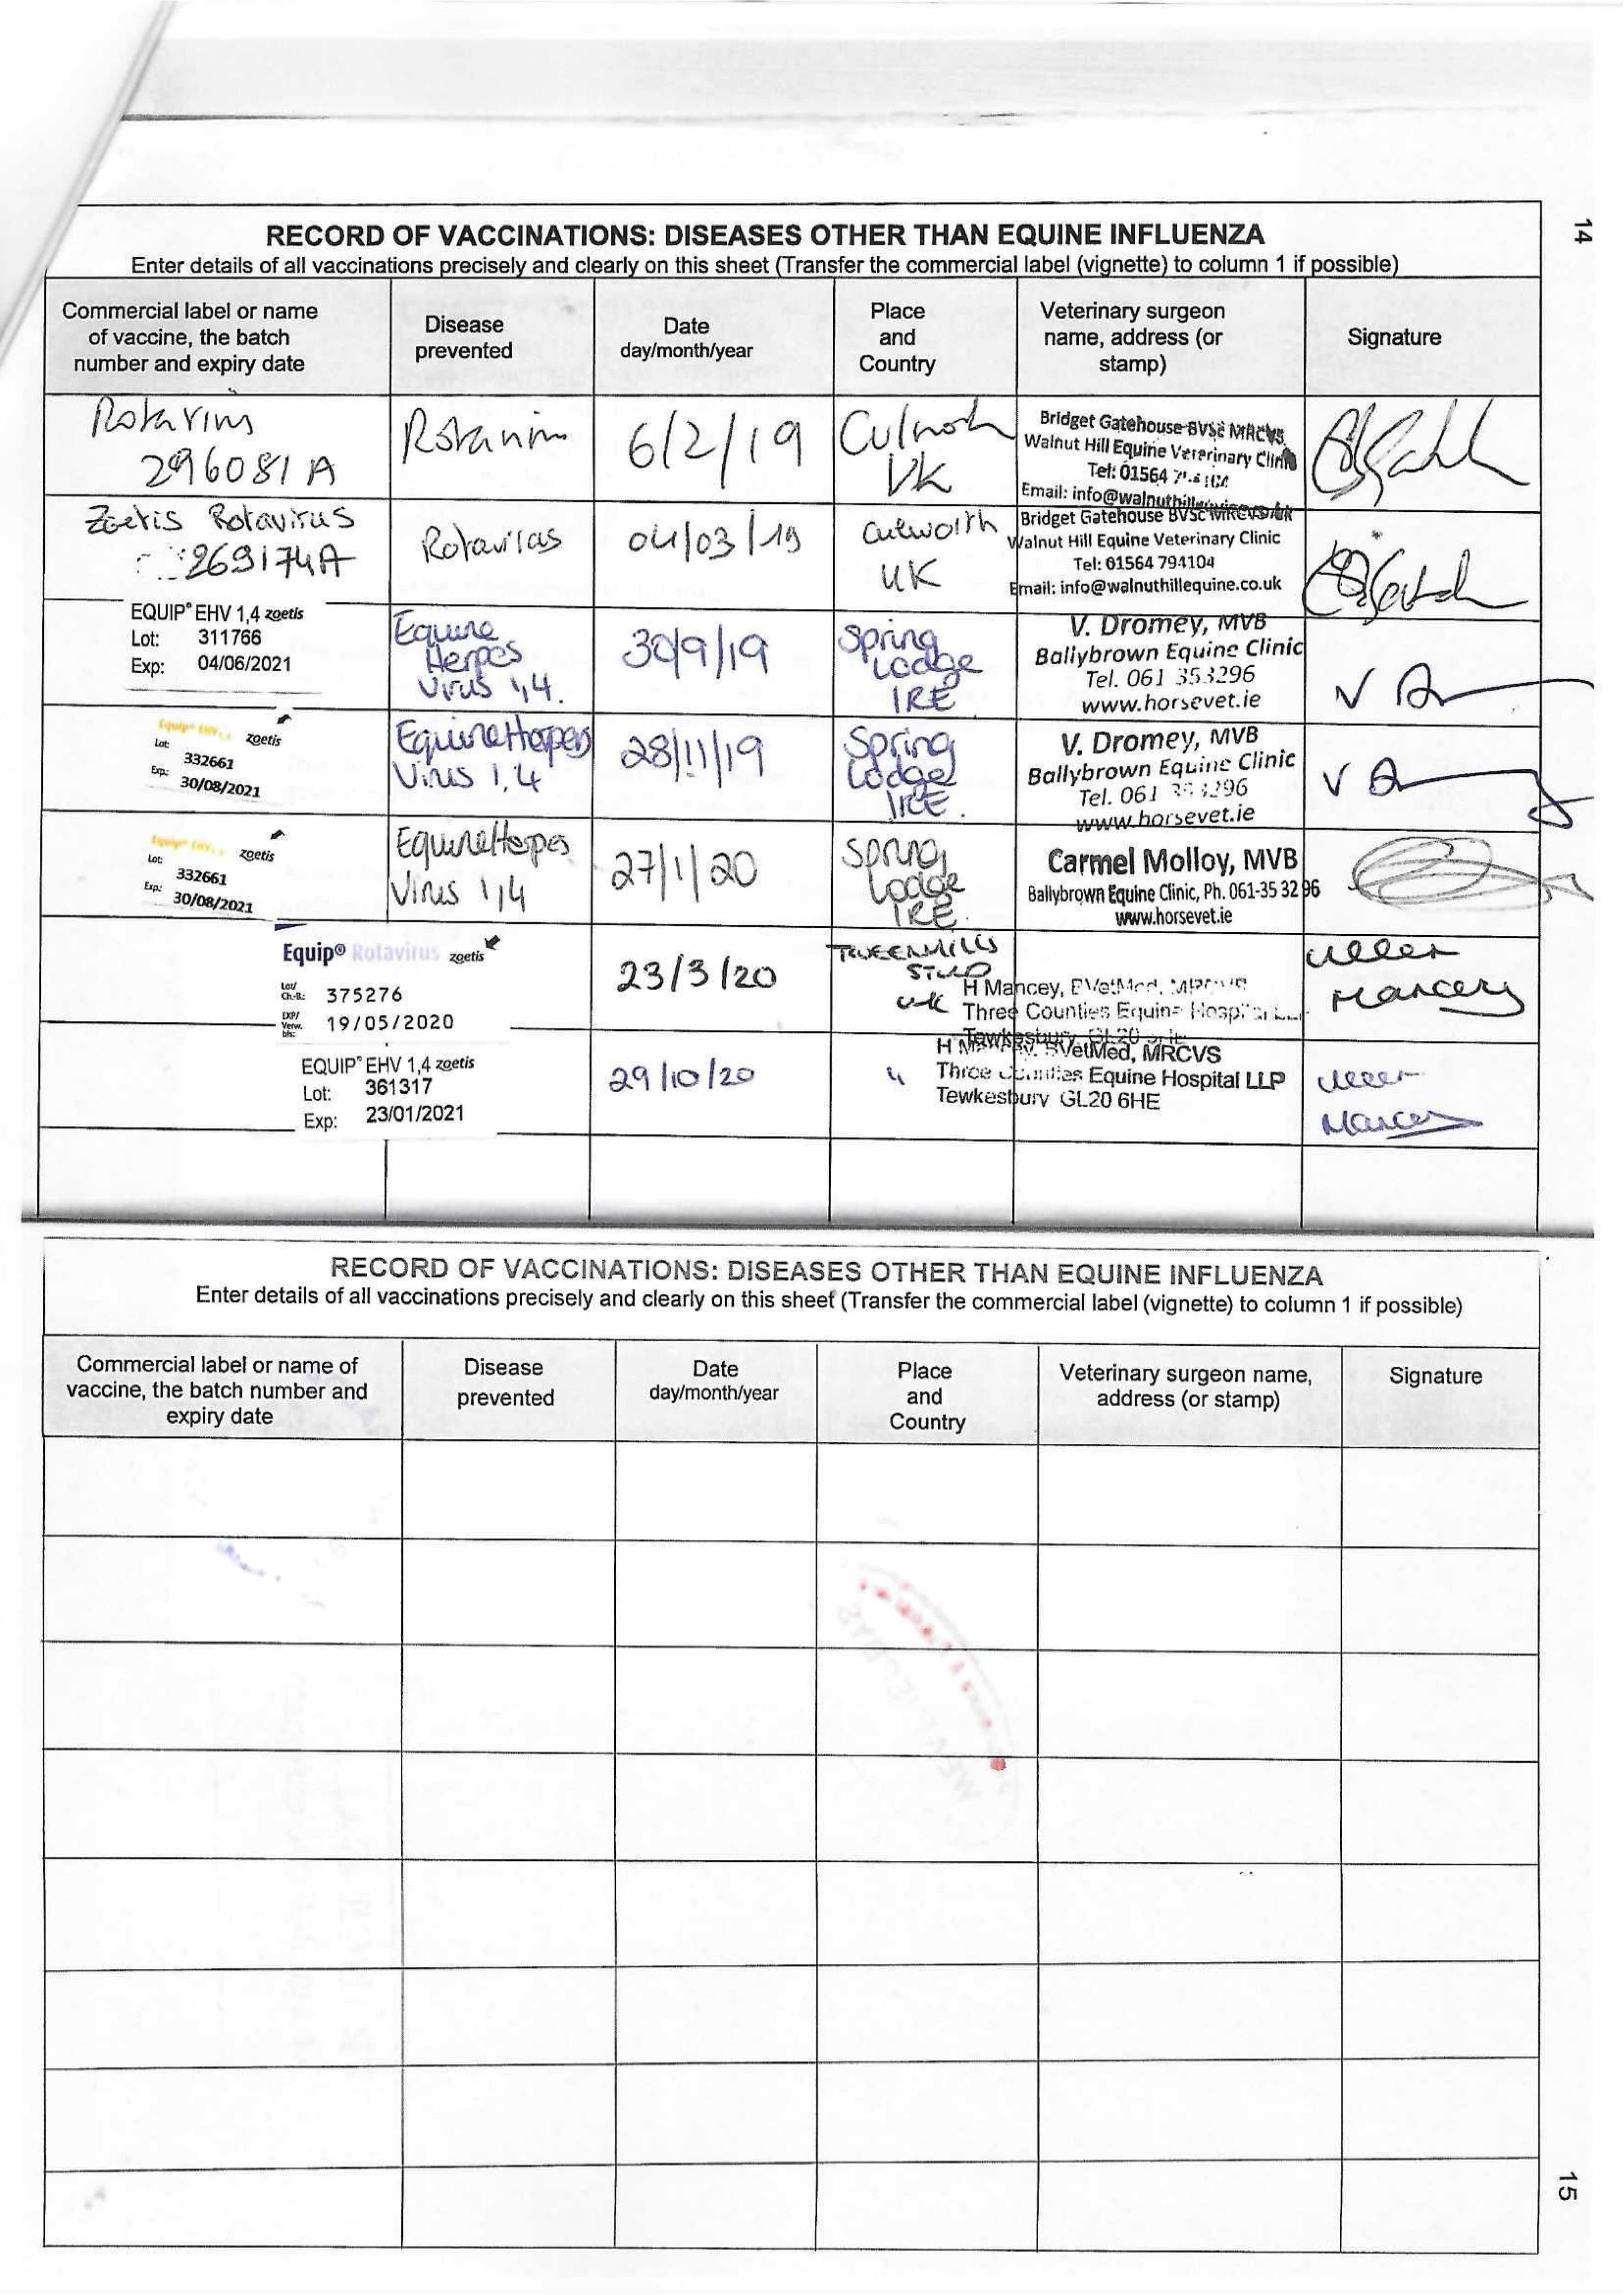 14
RECORD OF VACCINATIONS: DISEASES OTHER THAN EQUINE INFLUENZA
Enter details of all vaccinations precisely and clearly on this sheet (Transfer the commercial label (vignette) to column 1 if possible)
Commercial label or name
of vaccine, the batch
number and expiry date
Disease
prevented
Date
day/month/year
Place
and
Country
Veterinary surgeon
name, address (or
stamp)
Signature
296081 A
6/2/19
UK
Bridget Gatehouse BVSc MRCVS
Walnut Hill Equine Veterinary Clinic
Tel: 01564
Email: info@walnuthillequine
Zoetis Rotavirus
269174A
Rotavirus
04/03/19
Culworth
UK
Bridget Gatehouse BVSc MRCVS
Walnut Hill Equine Veterinary Clinic
Tel: 01564 794104
Email: info@walnuthillequine.co.uk
EQUIP® EHV 1,4 zoetis
Lot: 311766
Exp: 04/06/2021
Equine
Herpes
Virus 1,4.
30/9/19
Spring
Lodge
IRE
V. Dromey, MVB
Ballybrown Equine Clinic
Tel. 061 353296
www.horsevet.ie
Equip® EHV zoetis
Lot: 332661
Exp: 30/08/2021
Equine Herpes
Virus 1,4
28/11/19
Spring
Lodge
IRE.
V. Dromey, MVB
Ballybrown Equine Clinic
Tel. 061
www.horsevet.ie
Equip® EHV zoetis
Lot: 332661
Exp: 30/08/2021
Equine Herpes
Virus 1,4
27/1/20
Spring
Lodge
IRE.
Carmel Molloy, MVB
Ballybrown Equine Clinic, Ph. 061-35 32 96
www.horsevet.ie
Equip® Rotavirus zoetis
Lot/
Ch.-B.: 375276
EXP/
Verw.
bis: 19/05/2020
23/3/20
TWEENHILLS
STUD
UK
H Mancey, BVetMed, MRCVS
Three Counties Equine Hospital LLP
Tewkesbury GL20
Mancey
EQUIP® EHV 1,4 zoetis
Lot: 361317
Exp: 23/01/2021
29/10/20
"
H Mancey, BVetMed, MRCVS
Three Counties Equine Hospital LLP
Tewkesbury GL20 6HE
Mancey
RECORD OF VACCINATIONS: DISEASES OTHER THAN EQUINE INFLUENZA
Enter details of all vaccinations precisely and clearly on this sheet (Transfer the commercial label (vignette) to column 1 if possible)
Commercial label or name of
vaccine, the batch number and
expiry date
Disease
prevented
Date
day/month/year
Place
and
Country
Veterinary surgeon name,
address (or stamp)
Signature
15